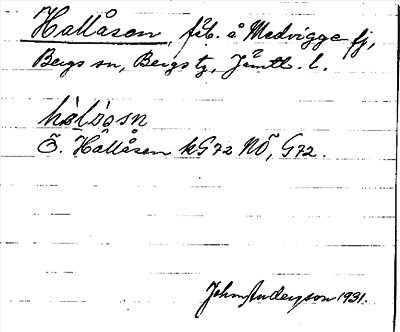 Hallåsen, fäb. å Medvigge fj,
Bergs sn, Bergs tg, Jämtl. l.
Ö. Hållåsen kG72 NÖ, G72.
John Anderson 1931.